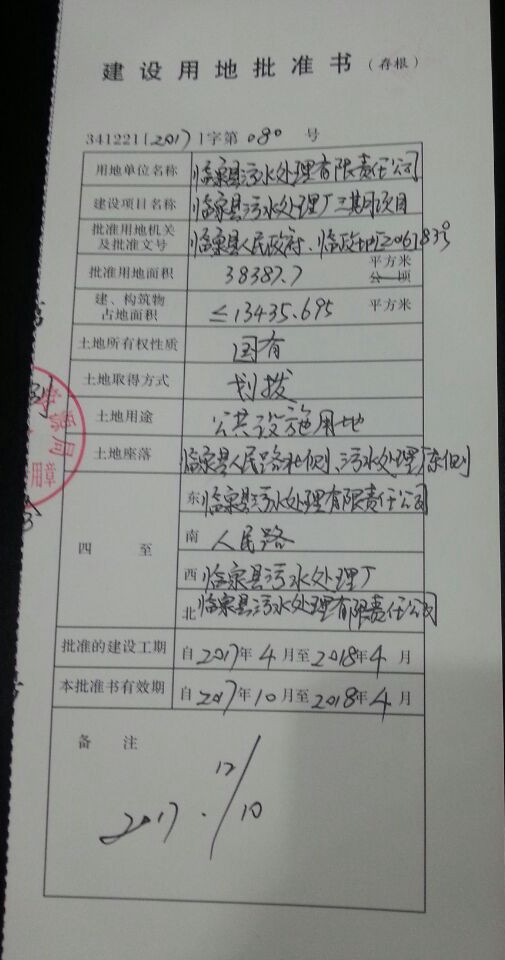 建设用地批准书（存根）
341221[2017]字第080号
用地单位名称 临泉县污水处理有限责任公司
建设项目名称 临泉县污水处理厂三期项目
批准用地机关
及批准文号 临泉县人民政府、临政地
批准用地面积 38387.7 平方米
公顷
建、构筑物
占地面积 ≤13435.695 平方米
土地所有权性质 国有
土地取得方式 划拨
土地用途 公共设施用地
土地座落 临泉县人民路北侧、污水处理厂东侧
四至
东 临泉县污水处理有限责任公司
南 人民路
西 临泉县污水处理厂
北 临泉县污水处理有限责任公司
批准的建设工期 自2017年4月至2018年4月
本批准书有效期 自2017年10月至2018年4月
备注
2017.12/10
局
用章